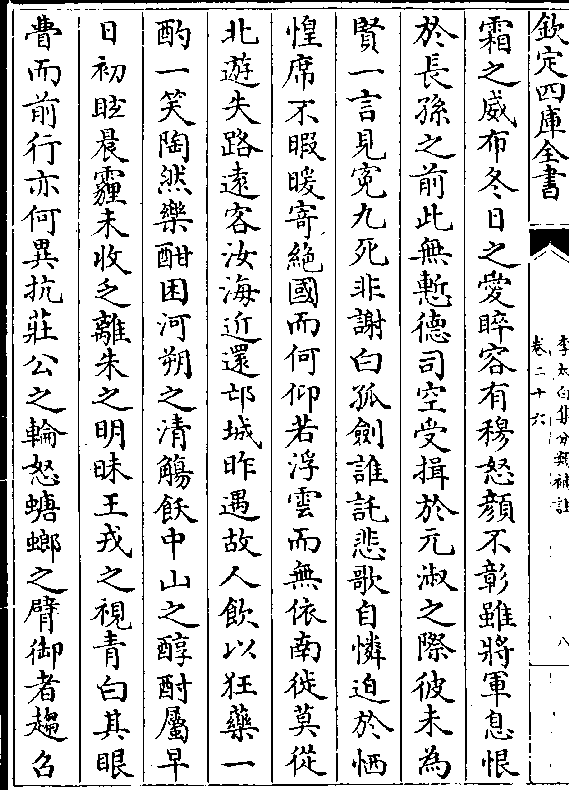 欽定四庫全書
李太白集分類補註
卷二十六
八
霜之威布冬日之愛睟容有穆怒顔不彰雖將軍息恨
於長孫之前此無慙德司空受揖於元淑之際彼未為
賢一言見寃九死非謝白孤劍誰託悲歌自憐迫於恓
惶席不暇暖寄絶國而何仰若浮雲而無依南徙莫從
北遊失路遠客汝海近還邙城昨遇故人飲以狂藥一
酌一笑陶然樂酣困河朔之清觴飫中山之醇酎屬早
日初眩晨霾未收乏離朱之明昧王戎之視青白其眼
瞢而前行亦何異抗莊公之輪怒螗螂之臂御者趨召